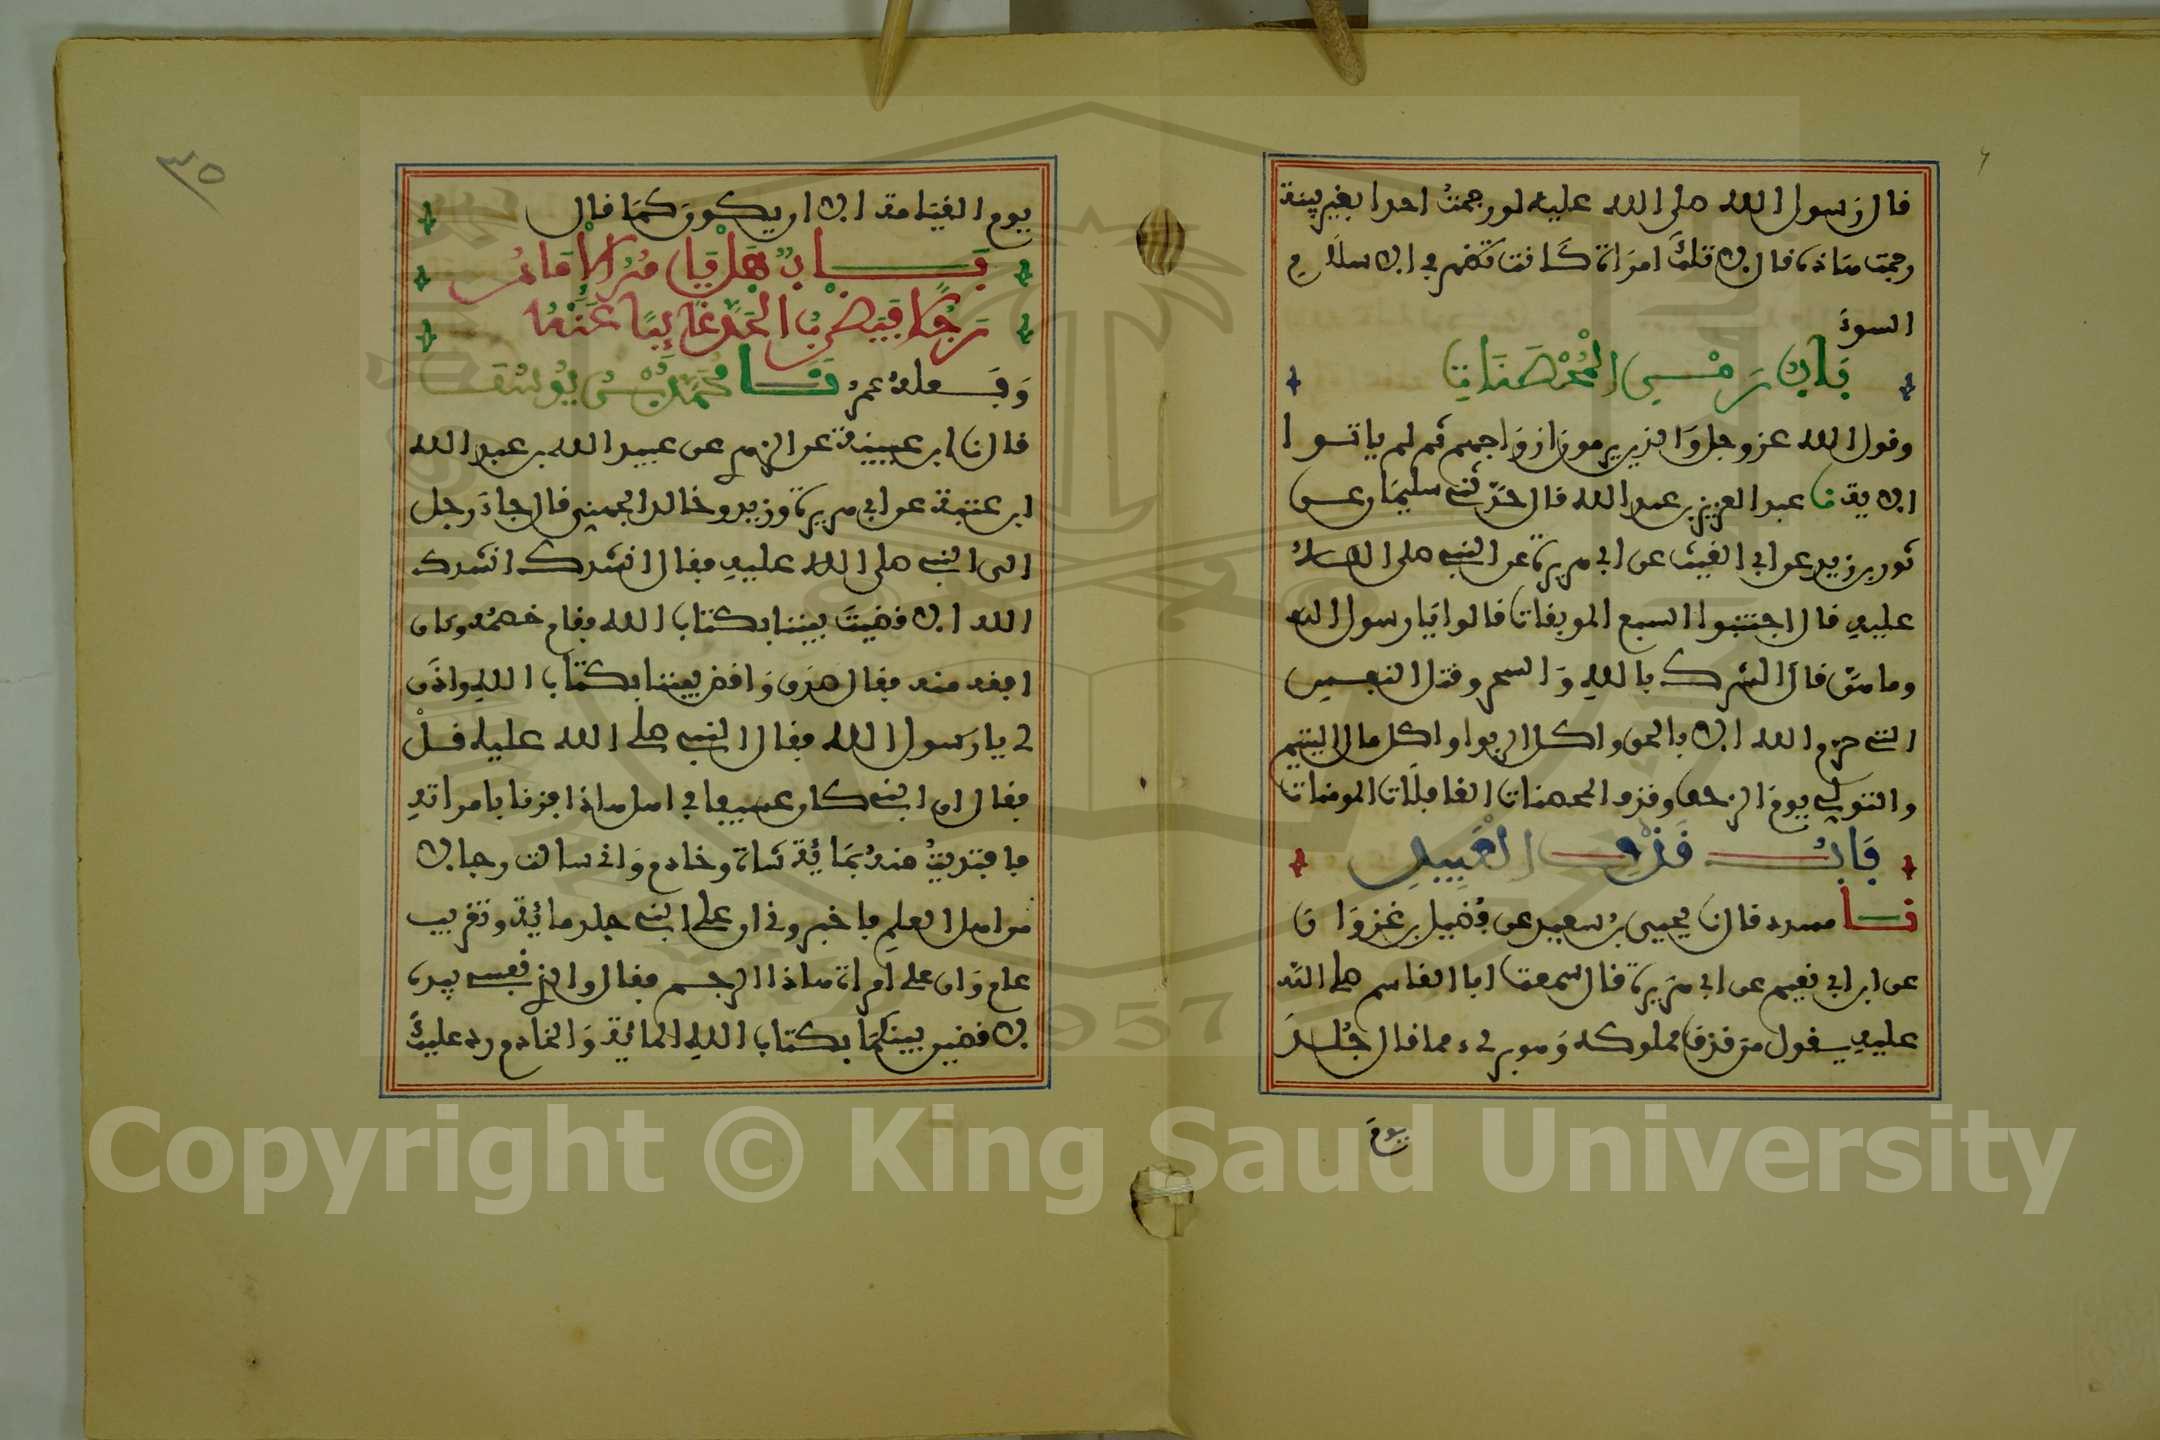 قال رسول الله صلى الله عليه لو رجمت احدا بغير بينة
رجمت هاذه فقال لا تلك امراة كانت تظهر في الاسلام
السوء
باب رمي المحصنات
وقول الله عز وجل والذين يرمون ازواجهم ثم لم ياتوا
الاية نا عبد العزيز بن عبد الله قال حدثني سليمان عن
ثور بن زيد عن ابي الغيث عن ابي هريرة عن النبي صلى الله
عليه قال اجتنبوا السبع الموبقات قالوا يا رسول الله
وما هن قال الشرك بالله والسحر وقتل النفس
التي حرم الله الا بالحق واكل الربوا واكل مال اليتيم
والتولي يوم الزحف وقذف المحصنات الغافلات المومنات
باب قذف العبيد
نا مسدد قال نا يحيى بن سعيد عن فضيل بن غزوان
عن ابن ابي نعيم عن ابي هريرة قال سمعت ابا القاسم صلى الله
عليه يقول من قذف مملوكه وهو بريء مما قال جلد
يوم
٣٥
يوم القيامة الا ان يكون كما قال
باب هل يامر الامام
رجلا فيضرب الحد غايبا عنه
وفعله عمر نا محمد بن يوسف
قال نا ابن عيينة عن الزهري عن عبيد الله بن عبد الله
ابن عتبة عن ابي هريرة وزيد وخالد الجهني قال جاء رجل
الى النبي صلى الله عليه فقال انشدك انشدك
الله الا قضيت بيننا بكتاب الله فقام خصمه وكان
افقه منه فقال صدق واقض بيننا بكتاب الله واذن
لي يا رسول الله فقال النبي صلى الله عليه قل
فقال ان ابني كان عسيفا في اهل هاذا فزنا بامراته
فافتديت منه بمائة شاة وخادم واني سالت رجالا
من اهل العلم فاخبروني ان على ابني جلد مائة وتغريب
عام وان على امراة هاذا الرجم فقال والذي نفسي بيده
لاقضين بينكما بكتاب الله المائة والخادم رد عليك
Copyright © King Saud University
1957